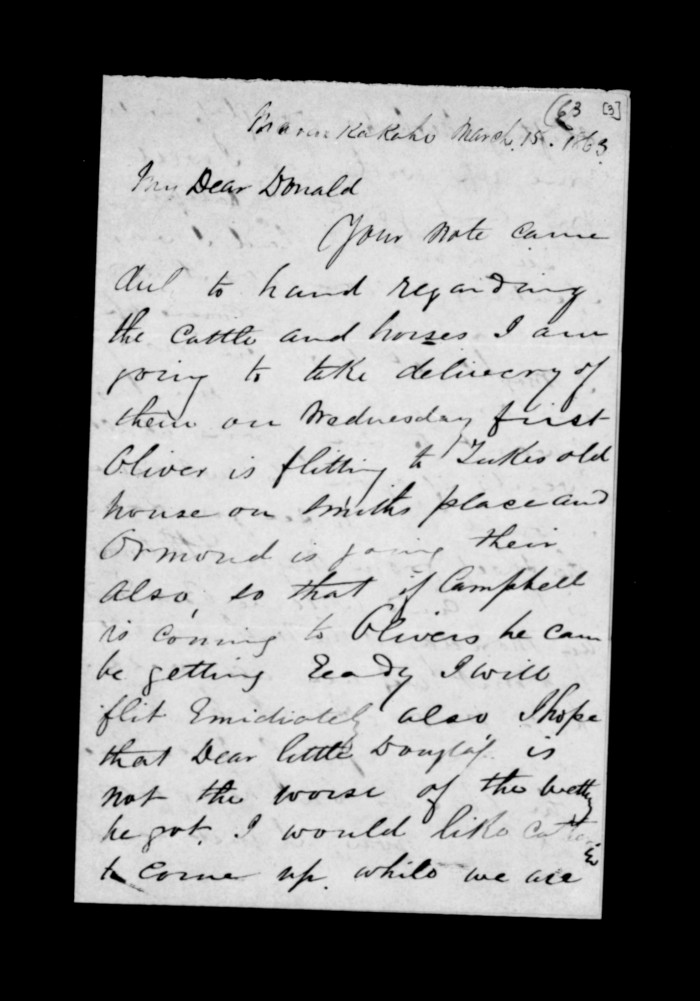 63 [3]
March. 15. 1863
My Dear Donald
Your note came
dul to hand regarding
the Cattle and horses I am
going to take delivecry of
them on Wednesday first
Oliver is flitting to old
house on Smiths place and
Ormond is going their
also, so that if Campbell
is coming to Olivers he can
be getting Ready I will
flit Emidiately also I hope
that Dear little Douglas is
not the worse of the wetting
he got. I would like
to come up while we are